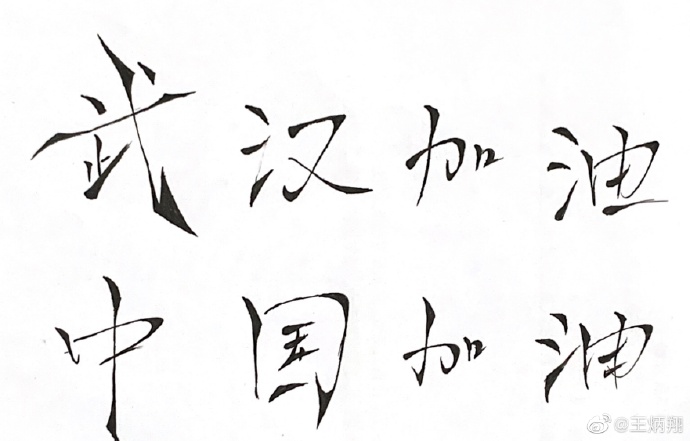 武汉加油
中国加油
@王炳翔